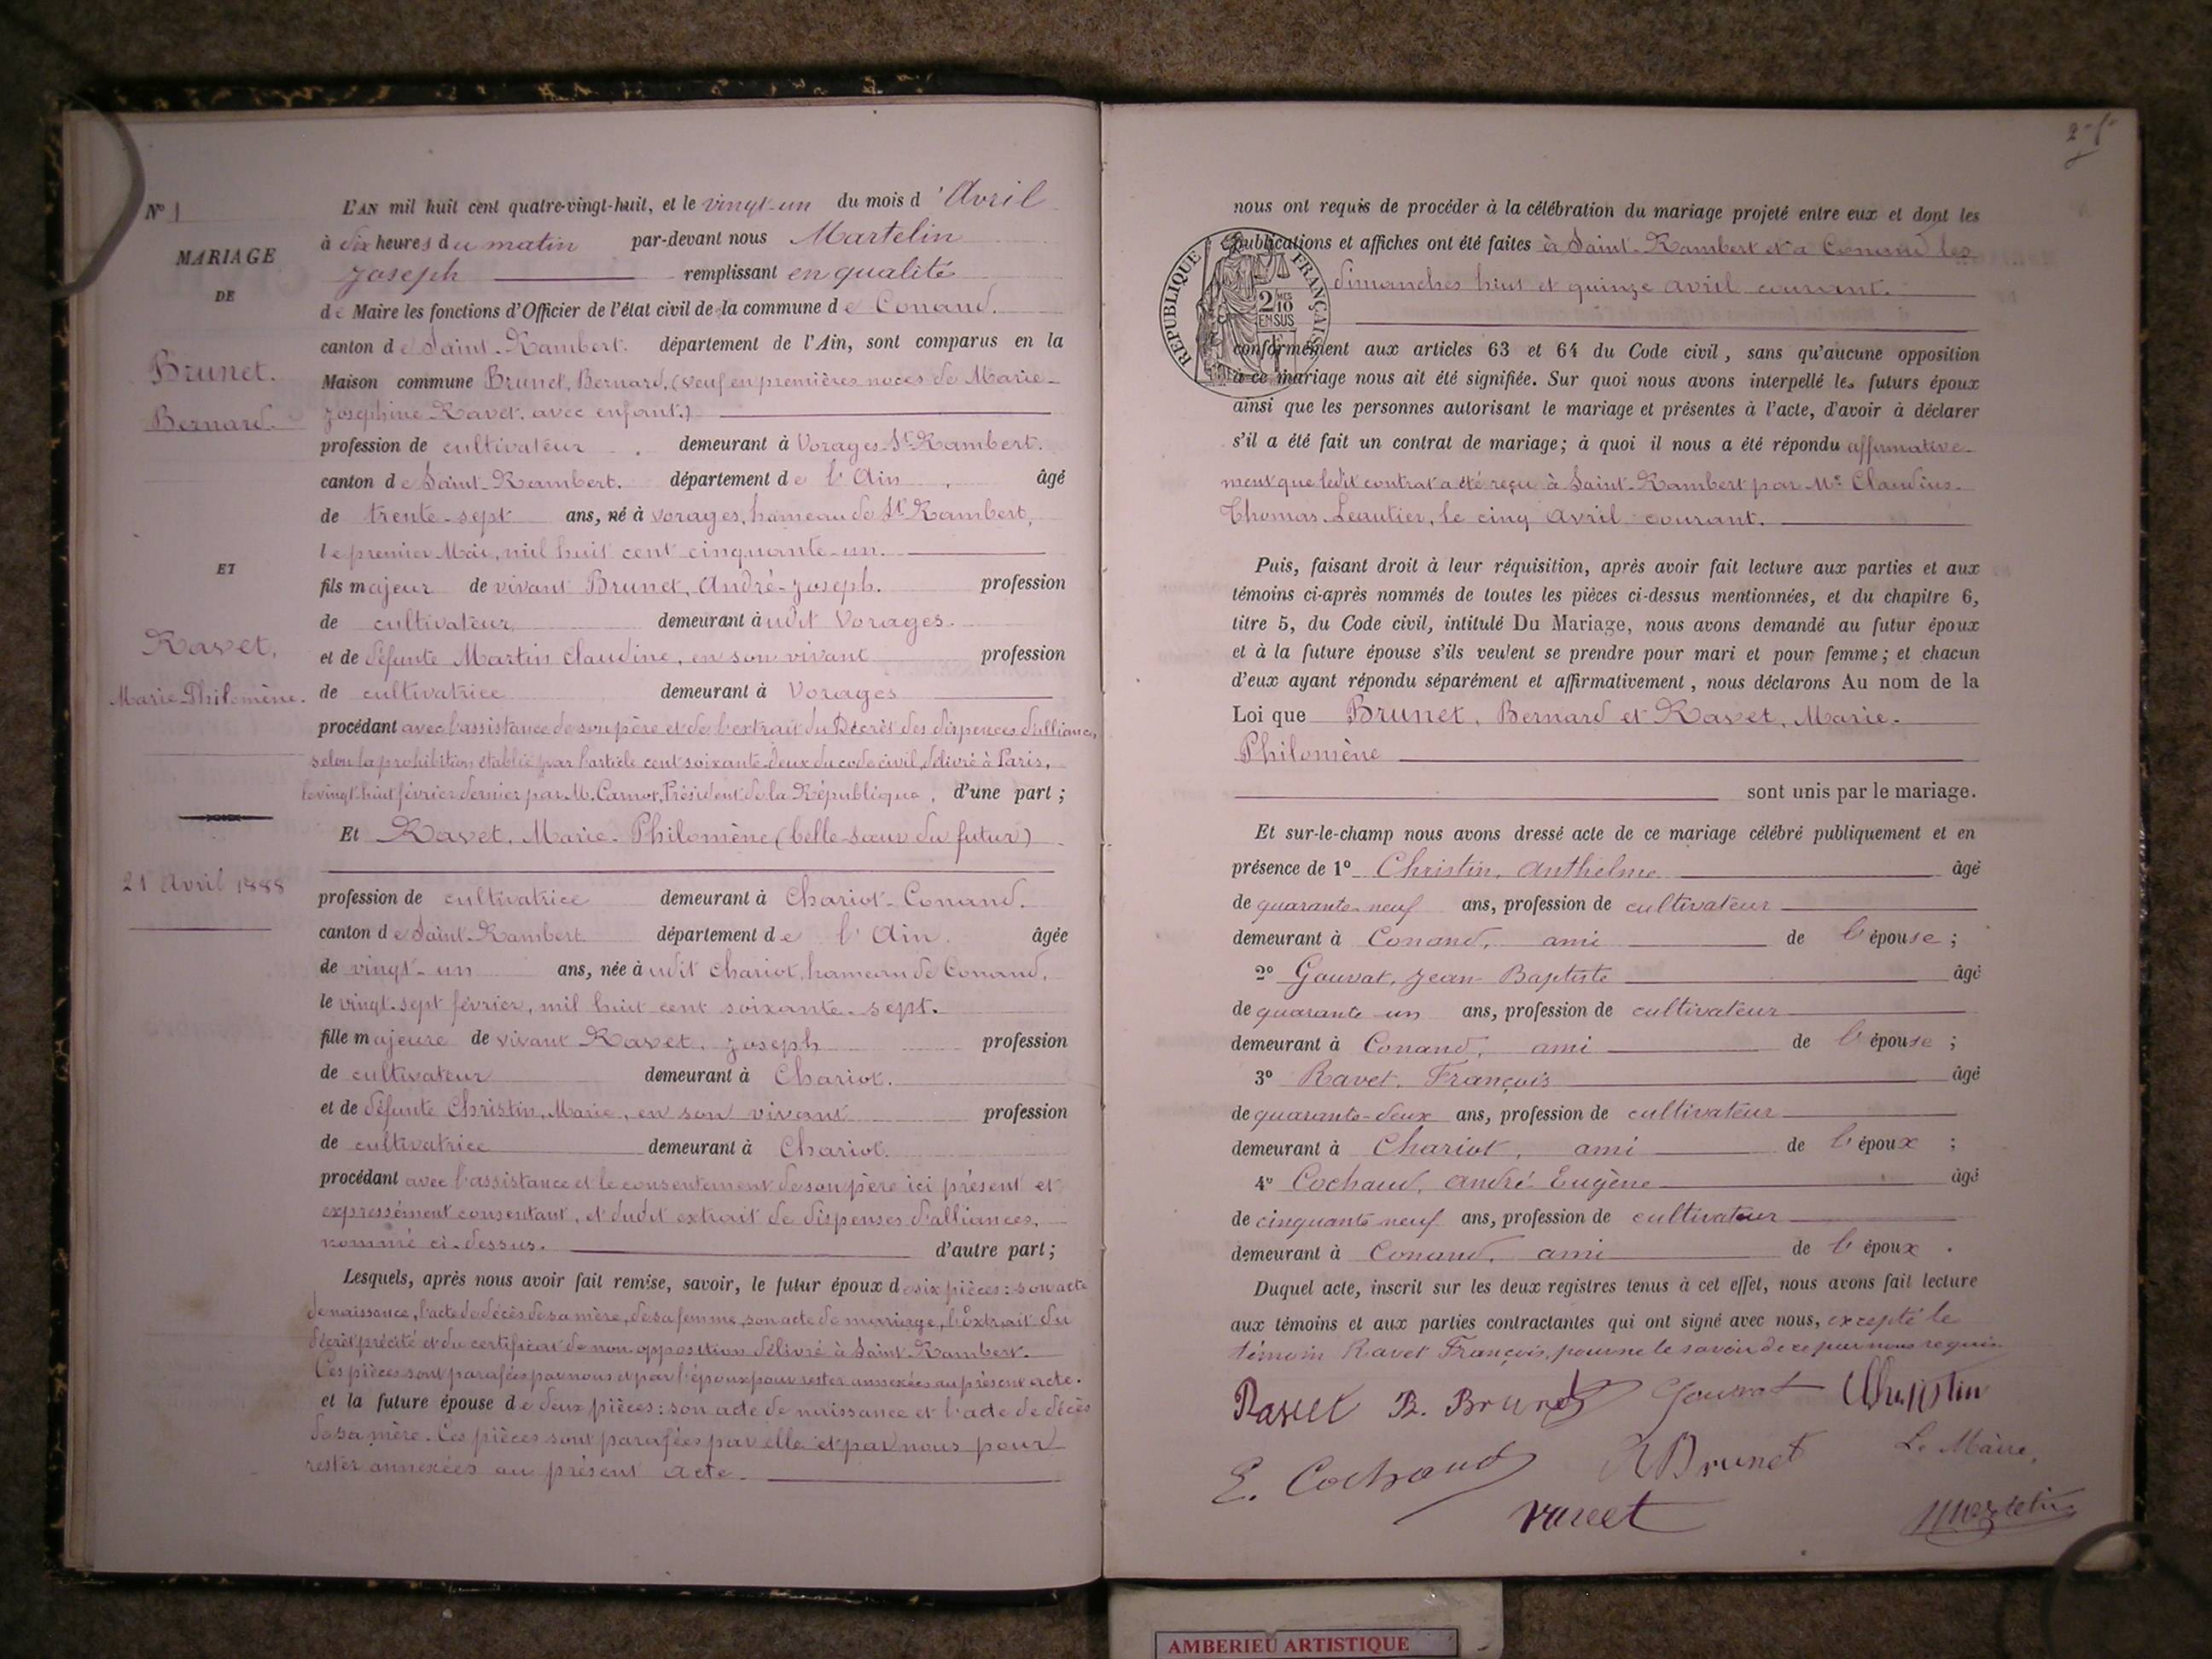 N° 1
MARIAGE
DE
Brunet.
Bernard.
ET
Ravet,
Marie-Philomène.
21 Avril 1888
L'AN mil huit cent quatre-vingt-huit, et le vingt-un du mois d'Avril
à dix heures du matin par-devant nous Martelin
Joseph remplissant en qualité
de Maire les fonctions d'Officier de l'état civil de la commune de Conand.
canton de Saint-Rambert. département de l'Ain, sont comparus en la
Maison commune Brunet, Bernard, (veuf en premières noces de Marie-
Joséphine Ravet, avec enfant.)
profession de cultivateur demeurant à Vorages-St Rambert.
canton de Saint-Rambert. département de l'Ain, âgé
de trente-sept ans, né à Vorages, hameau de St Rambert,
le premier Mai, mil huit cent cinquante-un.
fils majeur de vivant Brunet, André-Joseph. profession
de cultivateur demeurant àudit Vorages.
et de défunte Martin Claudine, en son vivant profession
de cultivatrice demeurant à Vorages
procédant avec l'assistance de son père et de l'extrait du Décrèt des dispences d'alliances,
selon la prohibition établie par l'article cent soixante-deux du code civil, délivré à Paris,
le vingt-huit février dernier par M. Carnot, Président de la République, d'une part ;
Et Ravet, Marie-Philomène (belle-sœur du futur)
profession de cultivatrice demeurant à Chariot-Conand.
canton de Saint-Rambert. département de l'Ain. âgée
de vingt-un ans, née àudit Chariot, hameau de Conand,
le vingt-sept février, mil huit cent soixante-sept.
fille majeure de vivant Ravet, Joseph profession
de cultivateur demeurant à Chariot.
et de défunte Christin, Marie, en son vivant profession
de cultivatrice demeurant à Chariot.
procédant avec l'assistance et le consentement de son père ici présent et
expressément consentant, et dudit extrait de dispenses d'alliances,
nommé ci-dessus. d'autre part ;
Lesquels, après nous avoir fait remise, savoir, le futur époux de six pièces : son acte
de naissance, l'acte de décès de sa mère, de sa femme, son acte de mariage, l'Extrait du
décrèt précité et du certificat de non opposition délivré à Saint-Rambert.
Ces pièces sont parafées par nous et par l'époux pour rester annexées au présent acte.
et la future épouse de deux pièces : son acte de naissance et l'acte de décès
de sa mère. Ces pièces sont parafées par elle et par nous pour
rester annexées au présent acte.
nous ont requis de procéder à la célébration du mariage projeté entre eux et dont les
publications et affiches ont été faites à Saint-Rambert et à Conand les
dimanches huit et quinze avril courant.
RÉPUBLIQUE FRANÇAISE
2 MES
10
EN SUS
conformément aux articles 63 et 64 du Code civil, sans qu'aucune opposition
à ce mariage nous ait été signifiée. Sur quoi nous avons interpellé les futurs époux
ainsi que les personnes autorisant le mariage et présentes à l'acte, d'avoir à déclarer
s'il a été fait un contrat de mariage ; à quoi il nous a été répondu affirmative-
ment que ledit contrat a été reçu à Saint-Rambert par Me Claudius-
Thomas Leautier, le cinq Avril courant.
Puis, faisant droit à leur réquisition, après avoir fait lecture aux parties et aux
témoins ci-après nommés de toutes les pièces ci-dessus mentionnées, et du chapitre 6,
titre 5, du Code civil, intitulé Du Mariage, nous avons demandé au futur époux
et à la future épouse s'ils veulent se prendre pour mari et pour femme ; et chacun
d'eux ayant répondu séparément et affirmativement, nous déclarons Au nom de la
Loi que Brunet, Bernard et Ravet, Marie-
Philomène
sont unis par le mariage.
Et sur-le-champ nous avons dressé acte de ce mariage célébré publiquement et en
présence de 1° Christin, Anthelme âgé
de quarante-neuf ans, profession de cultivateur
demeurant à Conand, ami de l'épouse ;
2° Gouvat, Jean Baptiste âgé
de quarante un ans, profession de cultivateur
demeurant à Conand, ami de l'épouse ;
3° Ravet, François âgé
de quarante-deux ans, profession de cultivateur
demeurant à Chariot, ami de l'époux ;
4° Cochaud, André Eugène âgé
de cinquante neuf ans, profession de cultivateur
demeurant à Conand, ami de l'époux.
Duquel acte, inscrit sur les deux registres tenus à cet effet, nous avons fait lecture
aux témoins et aux parties contractantes qui ont signé avec nous, excepté le
témoin Ravet François, pour ne le savoir de ce par nous requis
Ravet B. Brunet Gouvat Christin
E. Cochaud Brunet Le Maire,
ravet Martelin
AMBERIEU ARTISTIQUE